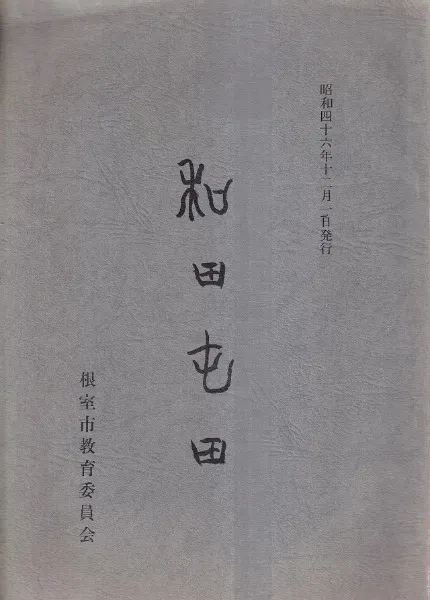 昭和四十六年十二月一日発行
和田屯田
根室市教育委員会